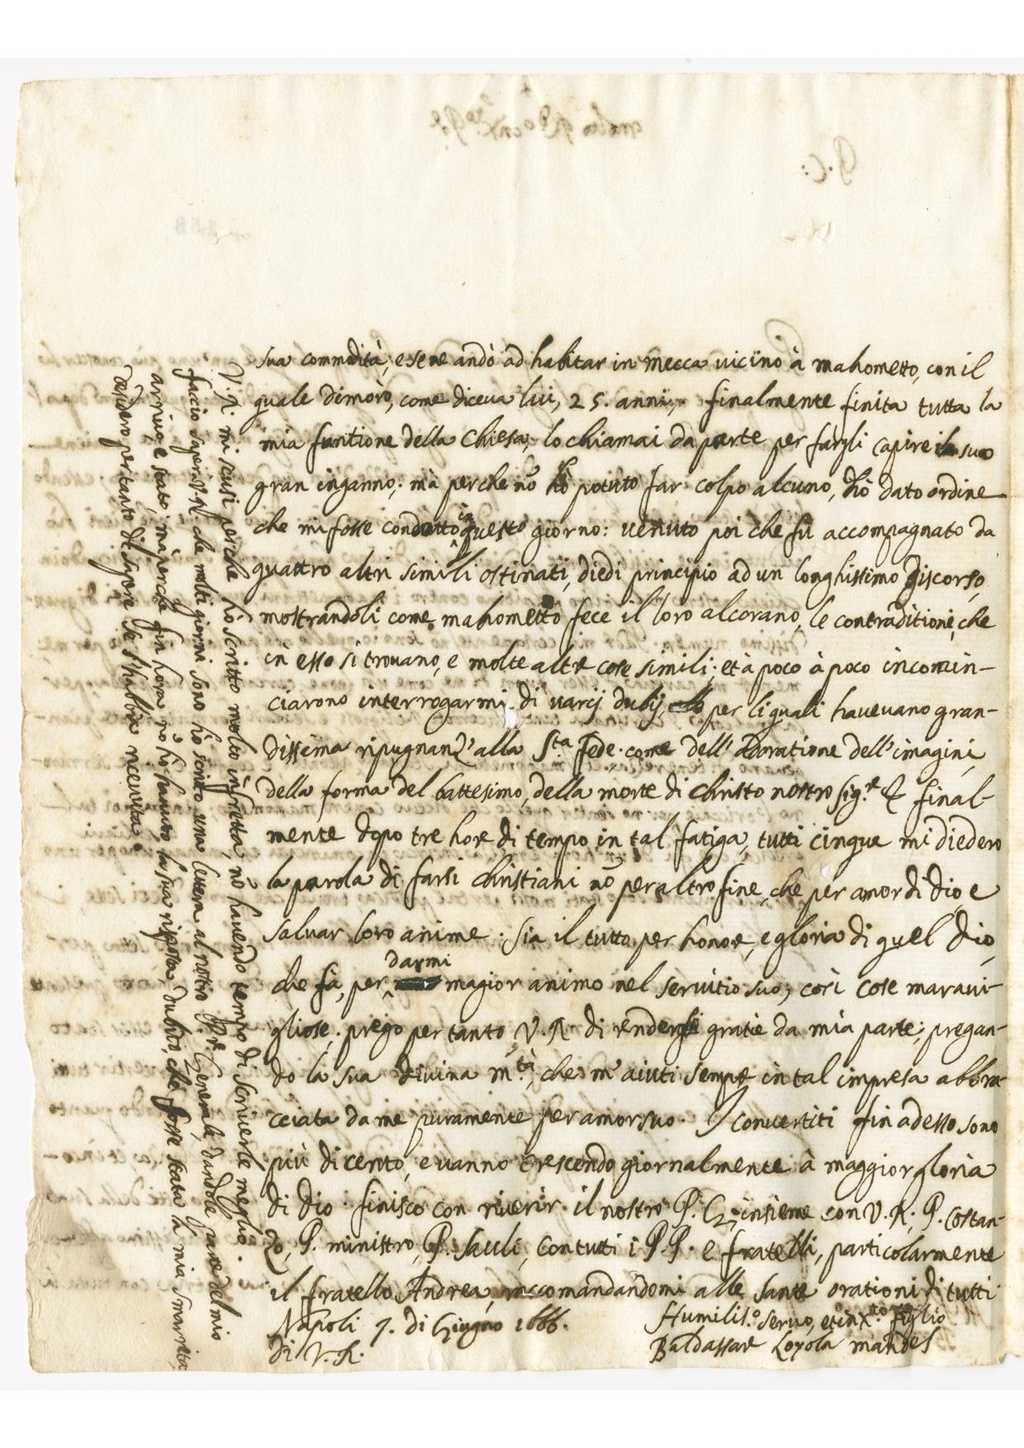 sua commodità, e se ne andò ad habitar in Mecca vicino à Mahometto, con il
quale dimorò, come diceva lui, 25. anni, finalmente finita tutta la
mia funtione della Chiesa, lo chiamai da parte per farli capire il suo
gran inganno; mà perche nõ hò potuto far colpo alcuno, hò dato ordine
che mi fosse condotto in questo giorno: venuto poi che fù accompagnato da
quattro altri simili ostinati, diedi principio ad un longhissimo discorso,
mostrandoli come Mahometto fece il loro alcorano, le contraditioni, che
in esso si trovano, e molte altre cose simili; et à poco à poco incomin-
ciarono interrogarmi di varij dubij, per li quali havevano gran-
dissima ripugnanz' alla S.ta fede. come dell' adoratione dell' imagini,
della forma del battesimo, della morte di Christo nostro Sig.re & final-
mente dopo tre hore di tempo in tal fatiga, tutti cinque mi diedero
la parola di farsi Christiani nõ per altro fine, che per amor di Dio e
salvar loro anime. Sia il tutto per honore, e gloria di quel Dio,
che fà, per darmi magior animo nel servitio suo, così cose maravi-
gliose. prego per tanto V. R. di renderli gratie da mia parte; pregan-
do la sua divina M.tà, che m' aiuti sempre in tal impresa abbra-
cciata da me puramente per amor suo. I convertiti fin adesso sono
più di cento, e vanno crescendo giornalmente à maggior gloria
di Dio. finisco con riverir il nostro P. insieme con V. R. P. Costan-
zo, P. ministro, P. Sauli, con tutti i P.P. e fratelli, particolarmente
il fratello Andrea, raccomandandomi alle sante orationi di tutti
Napoli 7. di Giugno 1666.
di V. R.
Humilis.o servo, et in X.o figlio
Baldassar Loyola Mandes
V. R. mi scusi perche hò scritto molto in fretta, nõ havendo tempo di scriverle meglio.
faccio saper à V. R. che molti giorni sono hò scritto una lettera al nostro P.re Generale, dandole parte del mio
arrivo, e stato; mà perche fin hora nõ hò havuto la sua risposta, dubito, che fosse stata la mia smarrita,
desidero per tanto di sapere se l' habbia ricevuta.